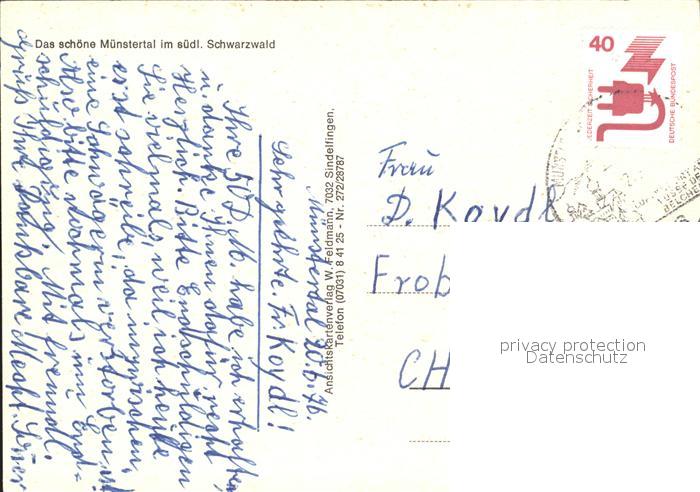 Das schöne Münstertal im südl. Schwarzwald
Münstertal 20.6.76.
Sehr geehrte Fr. Koydl!
Ihre 50 D.M. habe ich erhalten,
u. danke Ihnen dafür recht
Herzlich. Bitte Endschuldigen
Sie vielmals, weil ich heute
erst schreibe, da inzwischen
eine Schwägerin verstorben ist
Also bitte nochmals um End=
schuldigung. Mit freundl.
Gruß Ihre Dankbare
Ansichtskartenverlag W. Feldmann, 7032 Sindelfingen,
Telefon (07031) 8 41 25 - Nr. 272/28787
40
JEDERZEIT SICHERHEIT
DEUTSCHE BUNDESPOST
Frau
D. Koydl
Frob
CH
privacy protection
Datenschutz